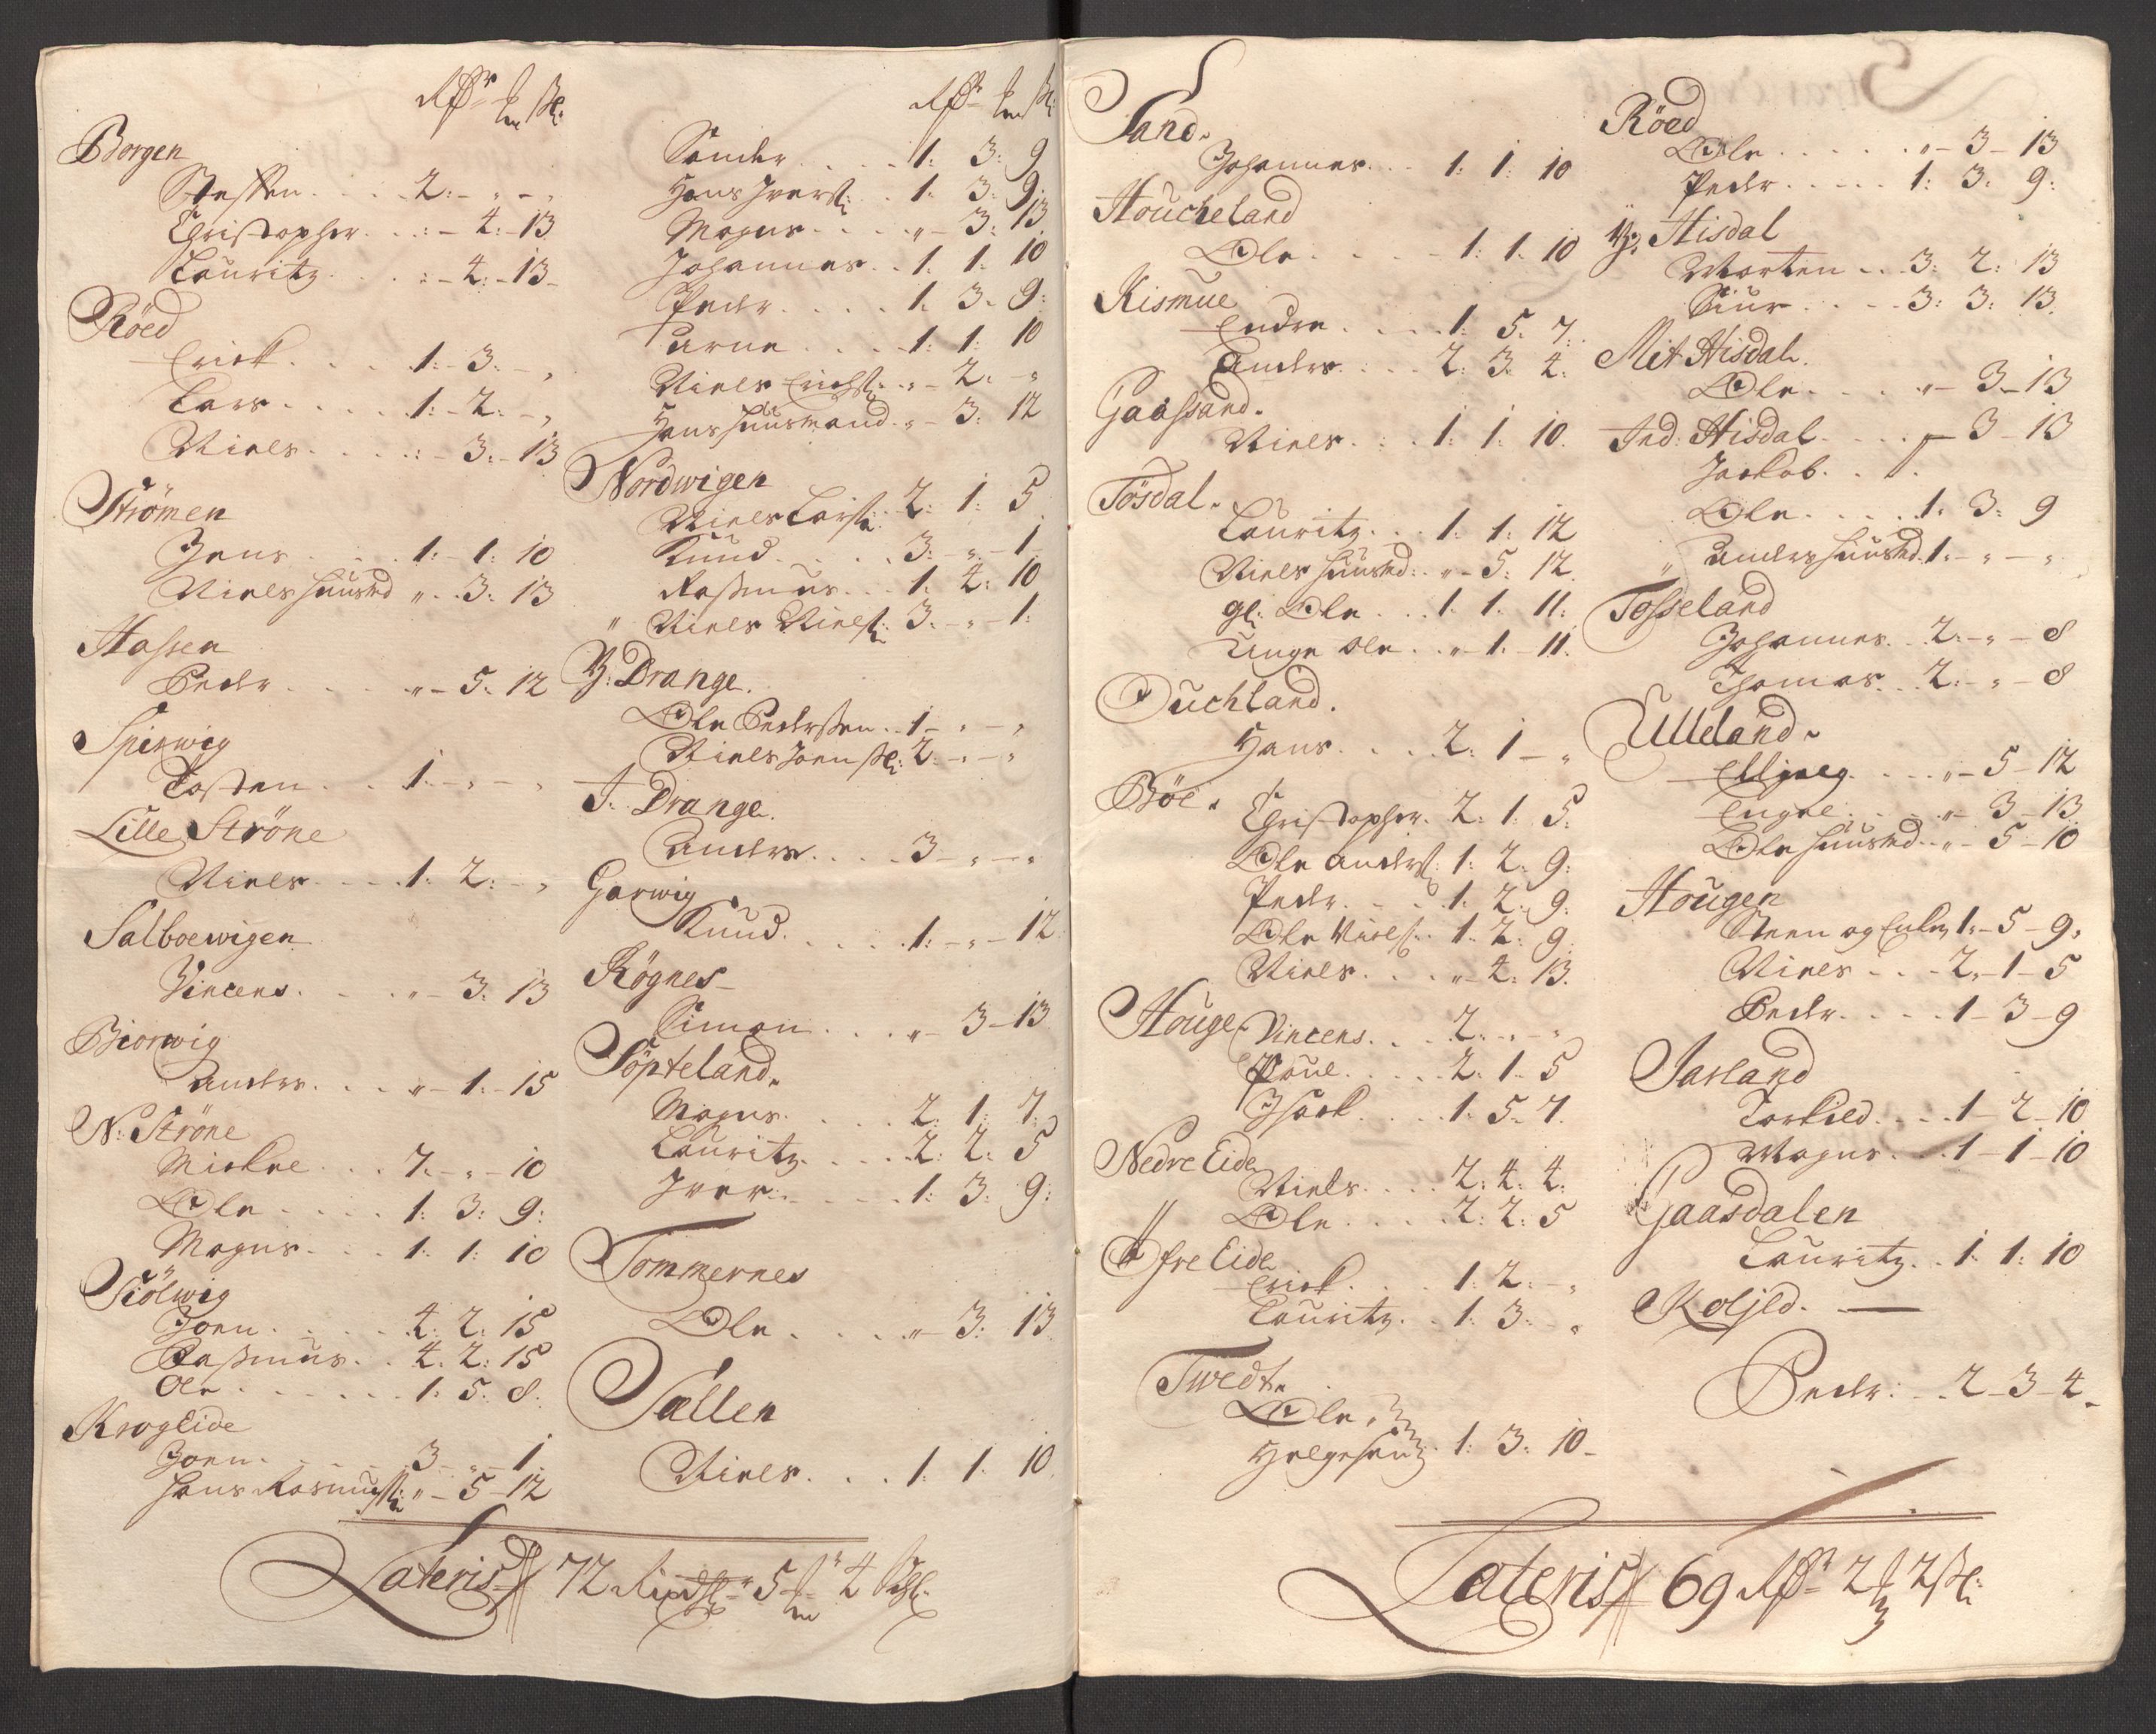 Rdr m ß:
Borgen
Steffen . . . 2: - " - "
Christopher . . : - 4: - 13
Lauritz . . . : - 4: - 13 -
Röed
Erick . . . . 1: - 3: - "
Lars . . . . 1: - 2: - "
Niels . . . . : - 3: - 13
Strömen
Jens . . . 1: - 1: 10
Niels huusmd " . . 3: 13
Hassen
Peder . . . . " - 5: 12
Spirwig
Tosten . . . 1: - " - "
Lille Ströne
Niels . . . . 1: 2: - "
Salboewigen
Vincens . . . . " - 3: 13
Biorwig
Anders . . . . " - 1: - 15
N: Ströne
Mickel . . . 7: - " - 10
Ole . . . . . 1: 3: 9:
Magns . . . 1: 1: 10
Siölwig
Joen . . . . . 4: 2: 15
Rasmus . . 4: 2: 15
Ole . . . . . . 1: 5: 8:
Krogeide
Joen . . . . . 3 - " - 1
Hans Rasmuss: " - 5 - 12
Rdr m ß:
Sander . . . . 1: 3: 9
Hans Iverss: . . 1: 3: 9:
Magns . . . . " - 3: 13
Johannes . . 1: 1: 10
Peder . . . . . 1: 3: 9:
Arne . . . . 1: 1: 10
Niels Erichs: . " - 2: - "
Hans huusmand . " - 3: 12
Nordwigen
Niels Larss: 2: 1: 5
Knud . . . . 3: - " - 1
Rasmus . . . 1: 4: 10
" Niels Nielss: 3: - " - 1:
Y: Drange.
Ole Pederssen . . 1 - " - "
Niels Joenss: 2: - " - "
I: Drange.
Anders . . . . 3 - " - "
Garwig
Knud . . . . . 1: - " - 12
Rögnes -
Simon . . . " - 3 - 13
Söpteland.
Magns . . . . 2: 1: 7:
Lauritz . . . . 2: 2: 5
Iver . . . . . 1: 3: 9:
Tommernes
Ole . . . . . " - 3: 13
Sællen
Niels . . . 1: 1: 10
Lateris 72 Rixdlr 5 m 4 ß:
Sand.
Johannes . . 1: 1: 10
Houcheland
Ole . . . . . 1: 1: 10
Kismue
Endre . . . . 1: 5: 7:
Anders . . . . 2: 3: 4:
Gaassand.
Niels . . . 1: 1: 10.
Tösdal.
Lauritz . . 1: 1: 12
Niels huusmd: " - 5: 12
gl: Ole . . . 1: 1: 11:
Unge Ole . . " - 1: - 11:
Ouchland.
Hans . . . 2: 1 - "
Böe.
Christopher . 2: 1: 5:
Ole Anderss: 1: 2: 9:
Peder . . . 1: 2: 9:
Ole Nielss: . 1: 2: 9
Niels . . . " - 4: 13.
Houge. Vincens . . . 2: - " - "
Poul . . . . . 2: 1: 5
Isack . . . . 1: 5: 7:
Nedre Eide
Niels . . . . 2: 4: 4:
" Ole . . . . 2: 2: 5
Ofre Eide
Erick . . . 1: 2: - "
Lauritz . . 1: 3: - "
Twedt.
Ole
Helgesen 1: 3: 10 -
Röed
Ole . . . . . . " - 3 - 13
Peder . . . . . 1: 3: 9:
Y: Hisdal
Morten . . . 3: 2: 13
Siur . . . . 3: 3: 13.
Mit Hisdal.
Ole . . . . " - 3 - 13
Ind: Hisdal . . . . . - 3 - 13
Jackob . . .
Ole . . . . . 1: 3: 9
" Anders huusmd. 1: - " - "
Tosseland
Johannes . . 2: - " - 8
Thomas . . 2: - " - 8
Ulleland.
Elljaeg . . . . " - 5 - 12
Engel . . . . " - 3 - 13
Ole huusmd . . " - 5 - 10
Hougen
Steen og Enke 1: - 5 - 9:
Niels . . . 2: - 1 - 5
Peder . . . . . 1 - 3 - 9
Jarland
Torkild . . . 1 - 2 - 10
Magns . . . 1 - 1 - 10
Gaasdalen
Lauritz . . 1: 1: 10
Koljld. —
Peder: . . 2 - 3 - 4 -
Lateris 69 Rdr 2 m 2 ß: